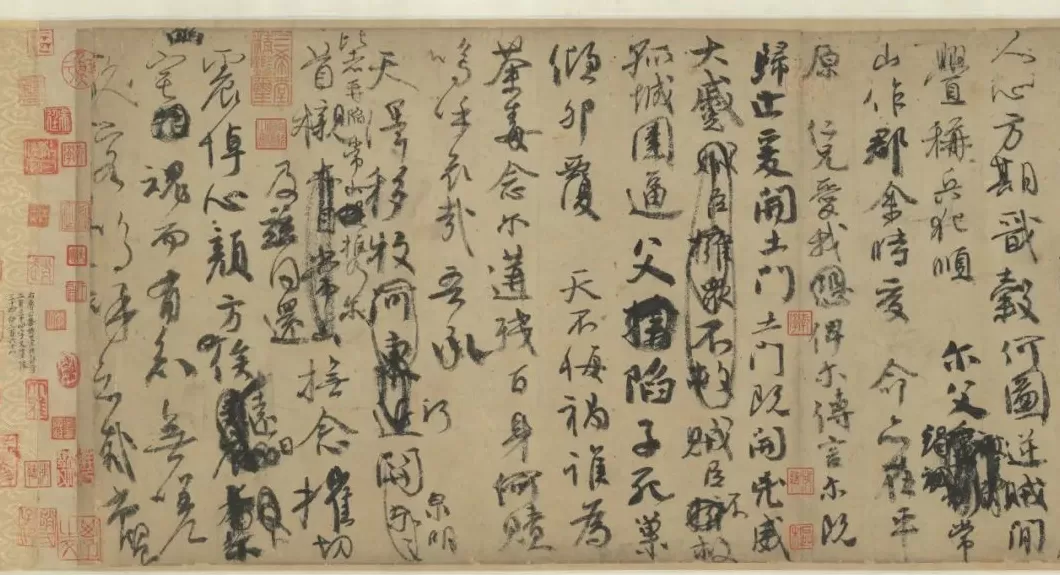 人心方期戩穀何圖逆賊閒
釁稱兵犯順 爾父竭誠常
山作郡余時受 命亦在平
原 仁兄愛我恐俾爾傳言爾既
歸止爰開土門土門既開凶威
大蹙賊臣擁眾不救賊臣不救
孤城圍逼父陷子死巢
傾卵覆 天不悔禍誰為
荼毒念爾遘殘百身何贖
嗚呼哀哉吾承
天澤移牧河東近 泉明
比者再陷常山攜爾
首櫬及茲同還撫念摧切
震悼心顏方俟遠日
宅魂而有知無嗟久
客嗚呼哀哉尚饗